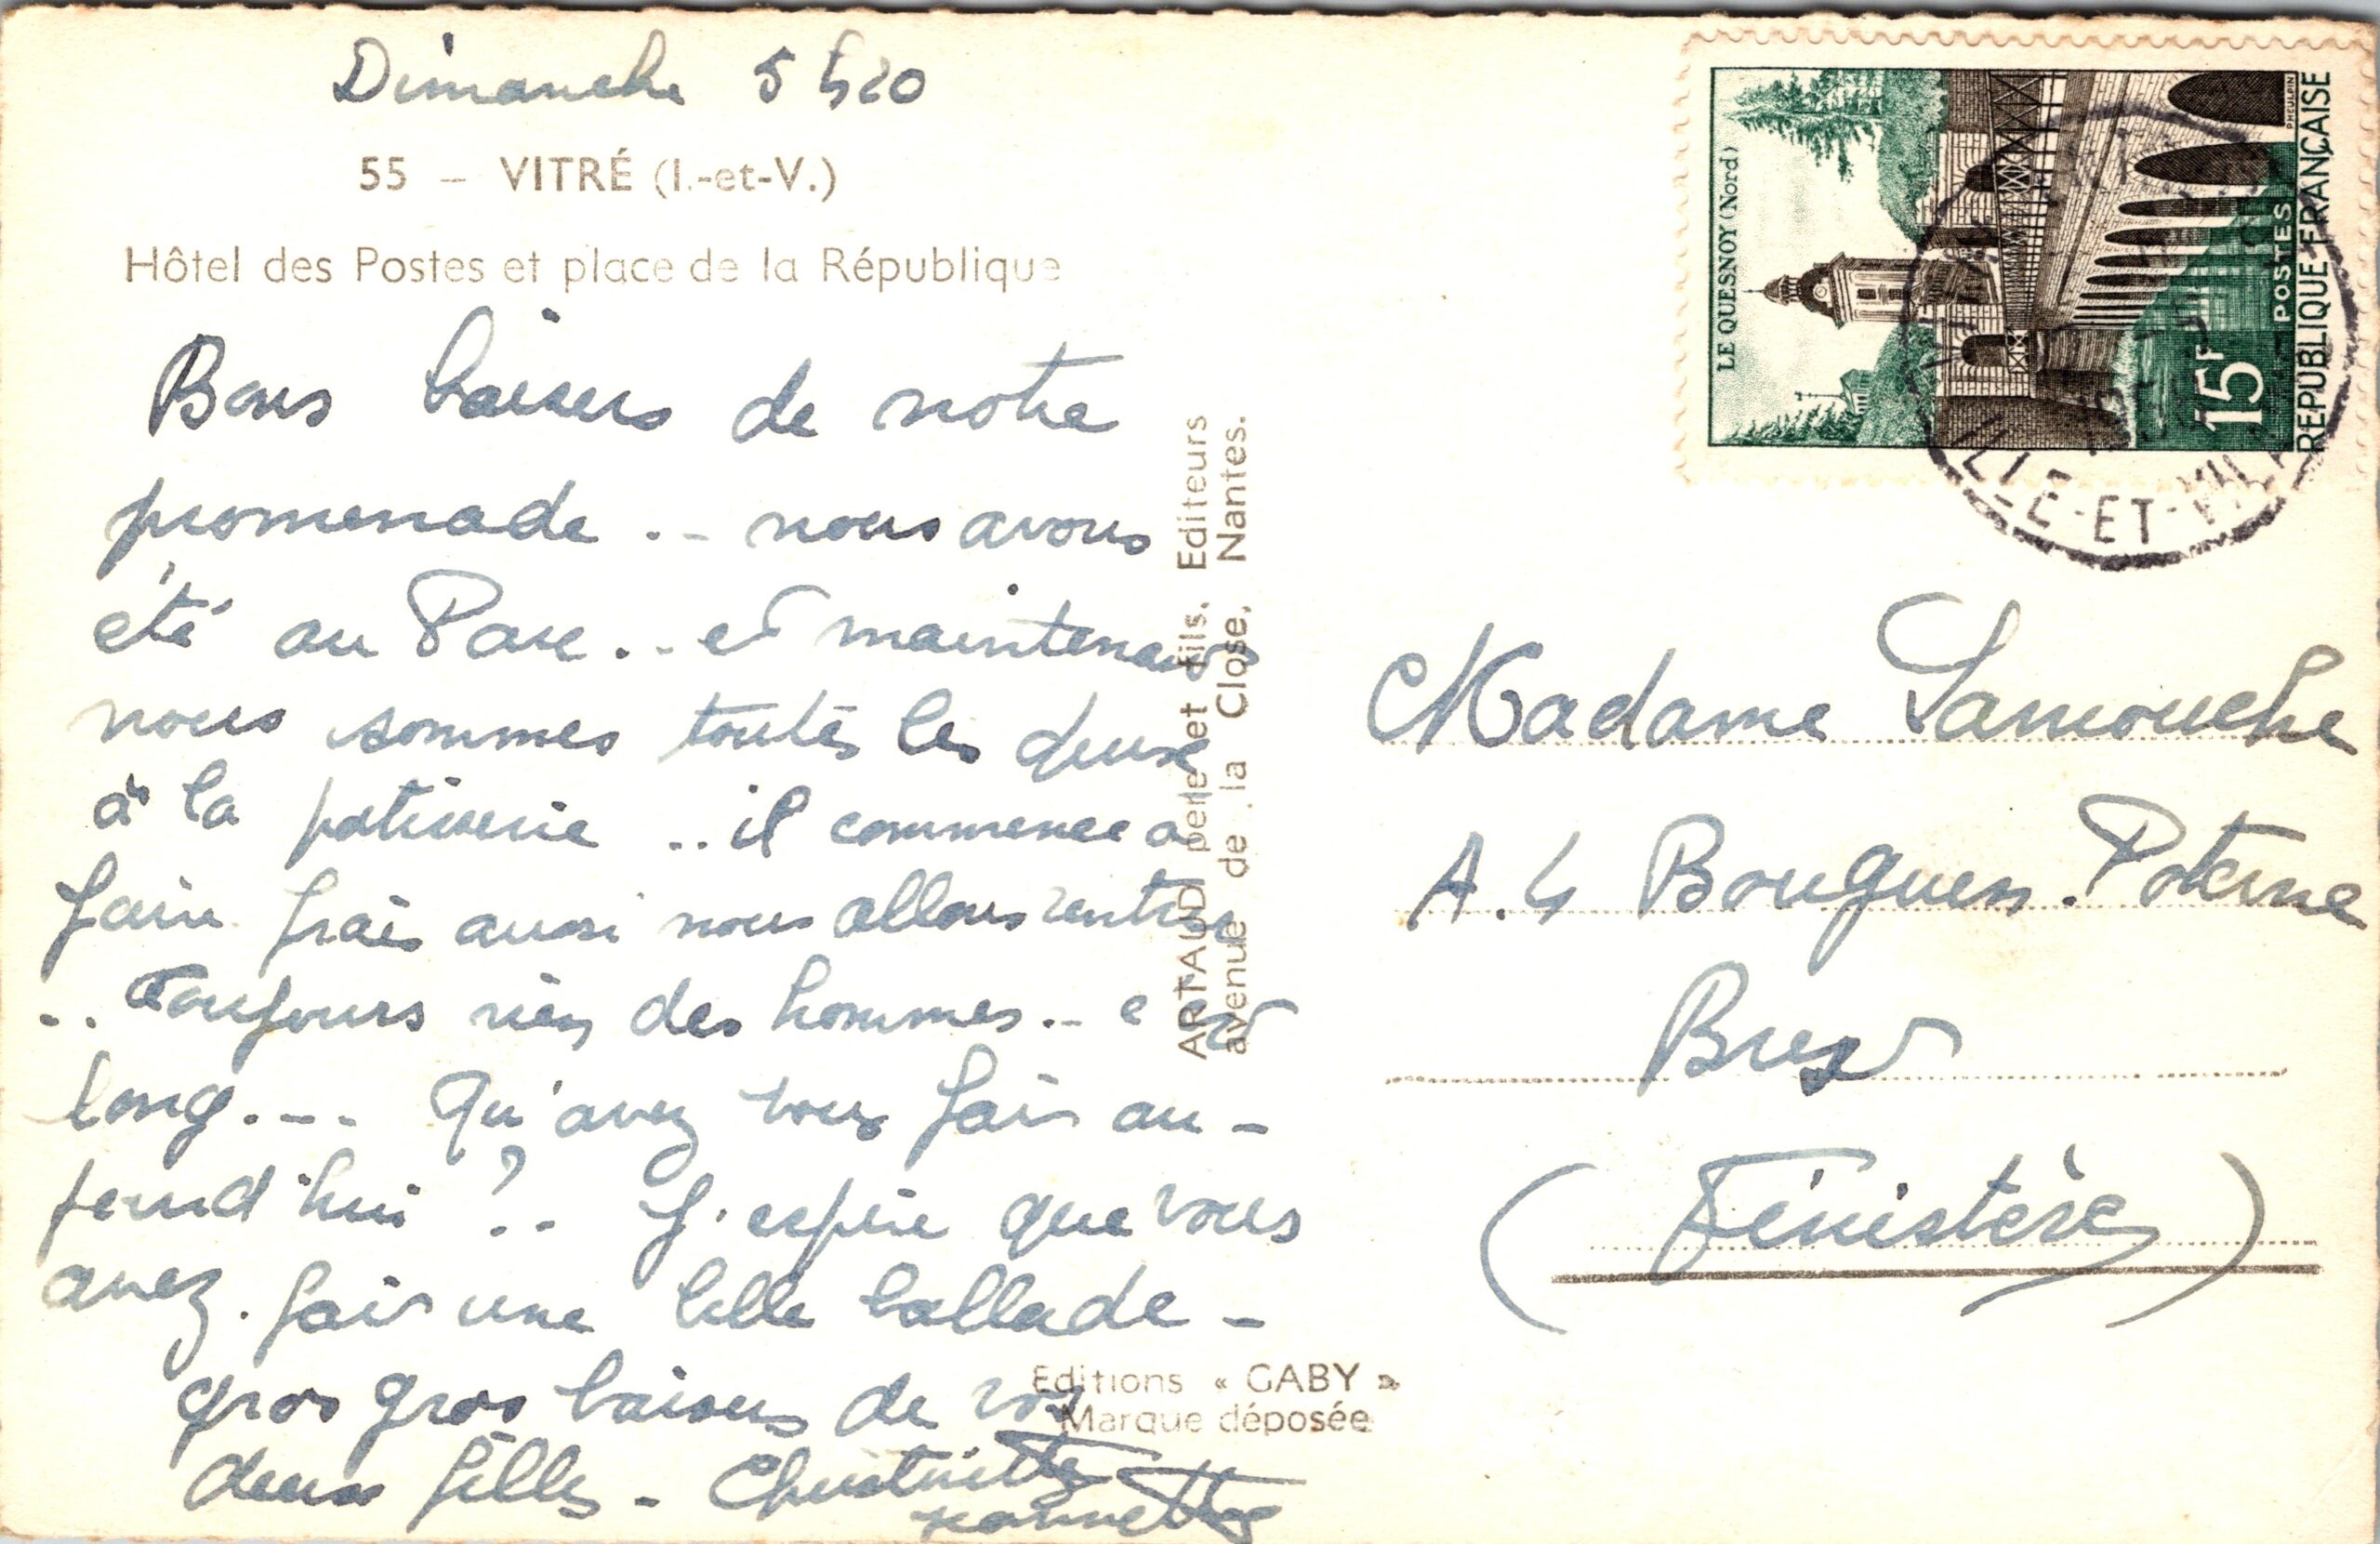 Dimanche 5 h 20
55 – VITRÉ (I.-et-V.)
Hôtel des Postes et place de la République
Bons baisers de notre
promenade .. nous avons
été au Parc .. et maintenant
nous sommes toutes les deux
à la patisserie .. il commence à
faire frais aussi nous allons rentrer
.. Toujours rien des hommes .. c'est
long .-- Qu'avez vous fait au-
jourd'hui ? .. J'espère que vous
avez fait une belle ballade -
gros gros baisers de vos
deux filles - Christniette
ARTAUD père et fils, Editeurs
avenue de la Close, Nantes.
Editions « GABY »
Marque déposée
LE QUESNOY (Nord)
15F POSTES
RÉPUBLIQUE FRANÇAISE
PHEULPIN
ILLE-ET-VILAINE
Madame Lamouche
A.4 Bouguen. Poterne
Brest
(Finistère)